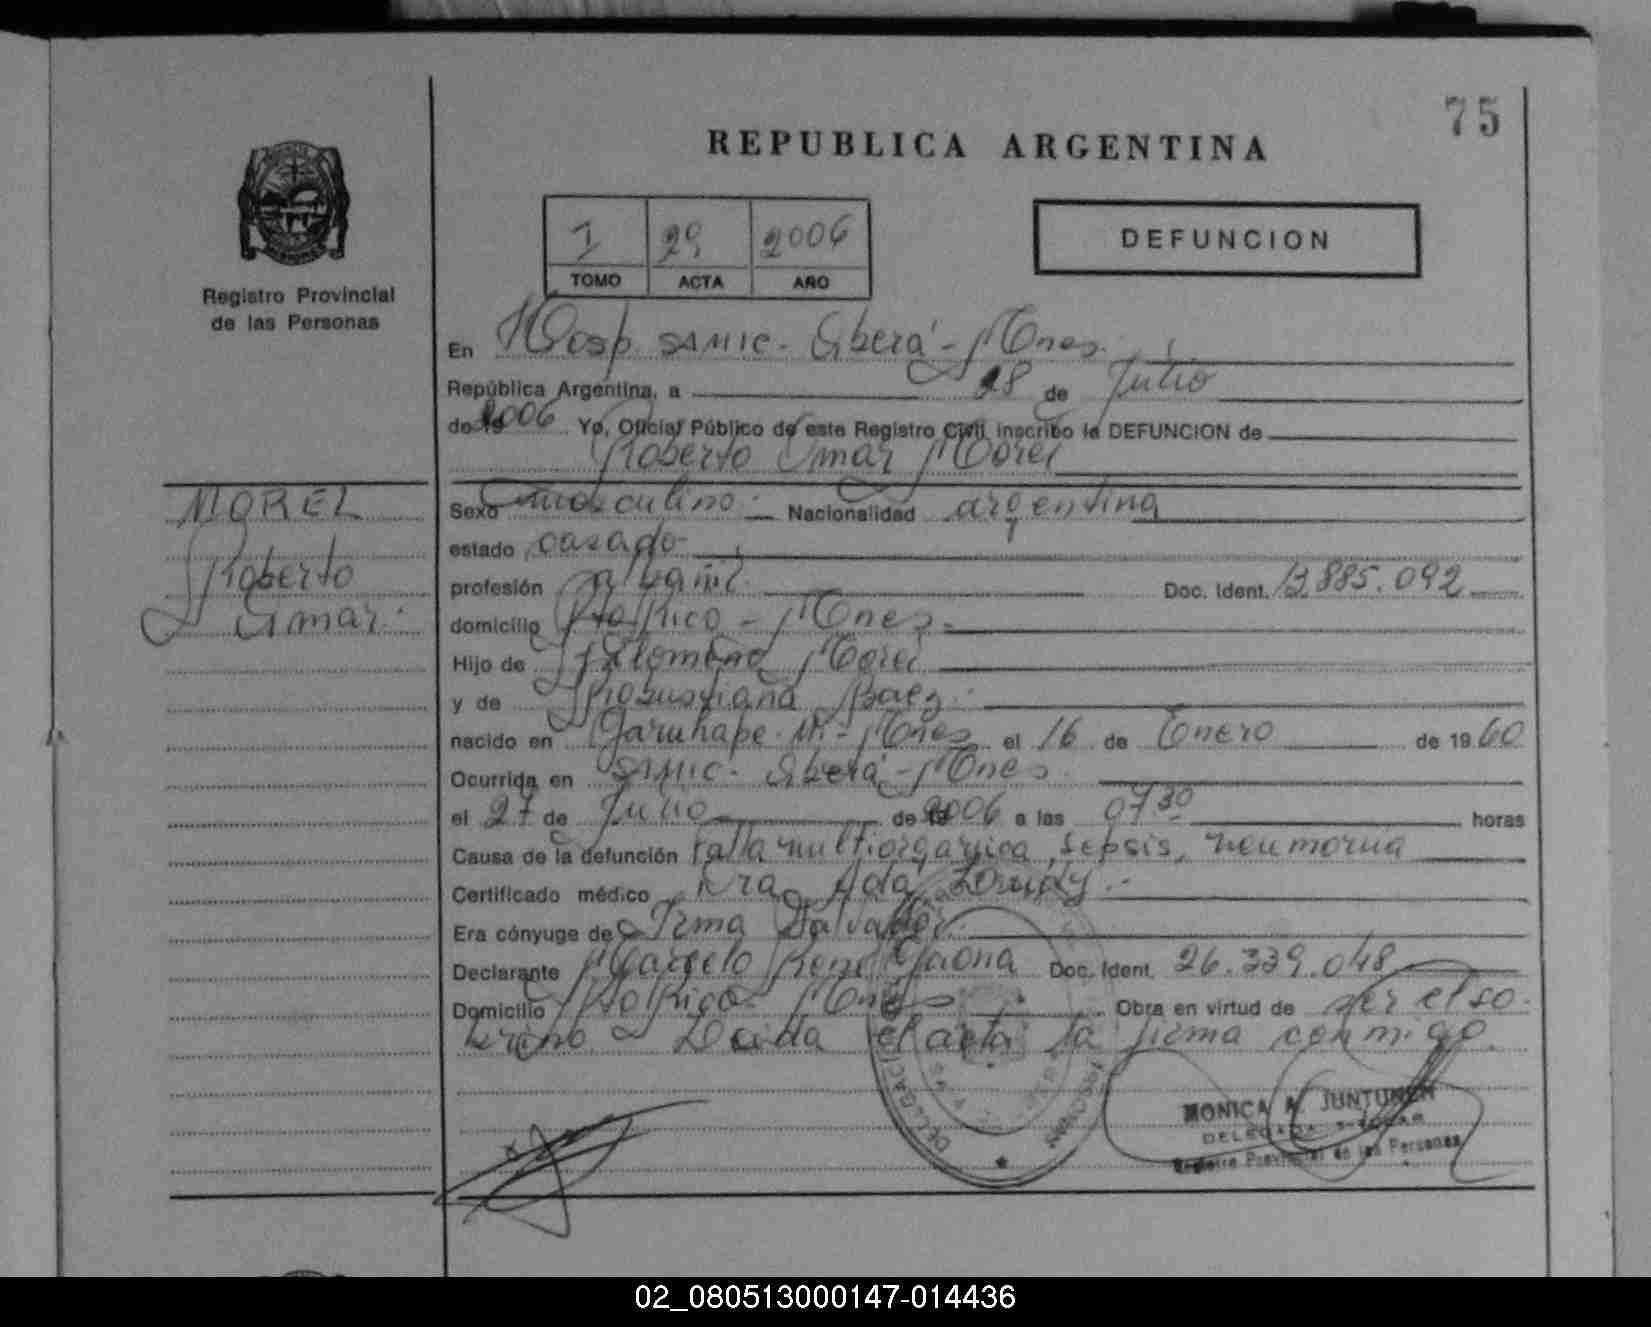 75
REPUBLICA ARGENTINA
1 29 2006
TOMO ACTA AÑO
DEFUNCION
Registro Provincial
de las Personas
En Hosp. SAMIC - Eldorado - Mnes.
República Argentina, a 28 de Julio
de 2006 Yo, Oficial Público de este Registro Civil, inscribo la DEFUNCION de
Roberto Omar Morel
MOREL
Roberto
Omar.
Sexo masculino. Nacionalidad argentina
estado casado
profesión albañil Doc. Ident. 13.885.092
domicilio Pto Rico - Mnes.
Hijo de Filomeno Morel
y de Robustiana Baez.
nacido en Garuhape - Mi - Mnes el 16 de Enero de 1960
Ocurrida en SAMIC - Mnes
el 27 de Julio de 2006 a las 07 30 horas
Causa de la defunción Falla multiorgánica, sepsis, neumonia
Certificado médico Dra. Ada
Era cónyuge de Irma
Declarante Marcelo Rene Gaona Doc. Ident. 26.339.048
Domicilio Pto Rico - Mnes Obra en virtud de ser el so-
brino - Leida el acta la firma conmigo.
MONICA A. JUNTUNEN
DELEGADA
Registro Provincial de las Personas
02_080513000147-014436